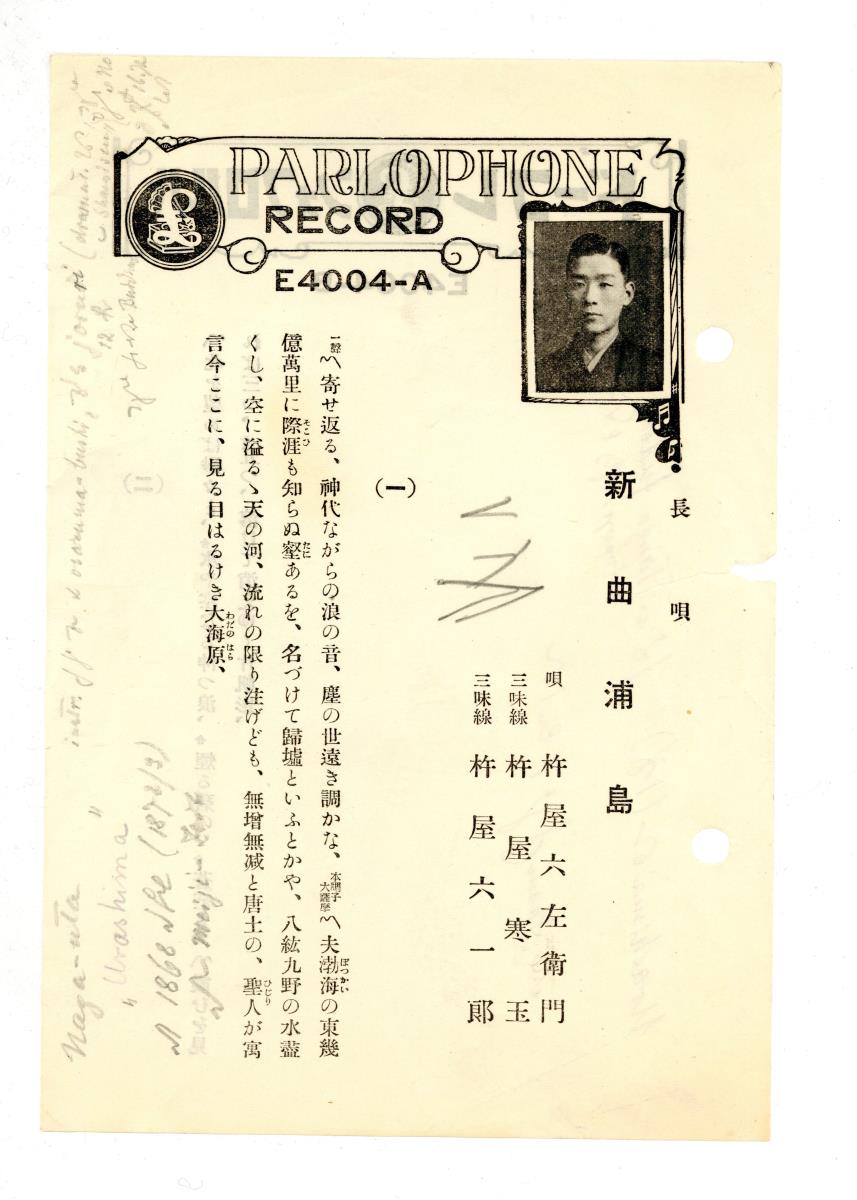 PARLOPHONE
RECORD
E4004-A
長唄
新曲浦島
唄 杵屋六左衛門
三味線 杵屋寒玉
三味線 杵屋六一郎
(一)
一聲〽寄せ返る、神代ながらの浪の音、塵の世遠き調かな、本調子大薩摩〽夫渤海の東幾
億萬里に際涯も知らぬ壑あるを、名づけて歸墟といふとかや、八紘九野の水盡
くし、空に溢るゝ天の河、流れの限り注げども、無增無减と唐土の、聖人が寓
言今ここに、見る目はるけき大海原、
Naga-uta
"Urashima"
1868 (1872/3)
(11)